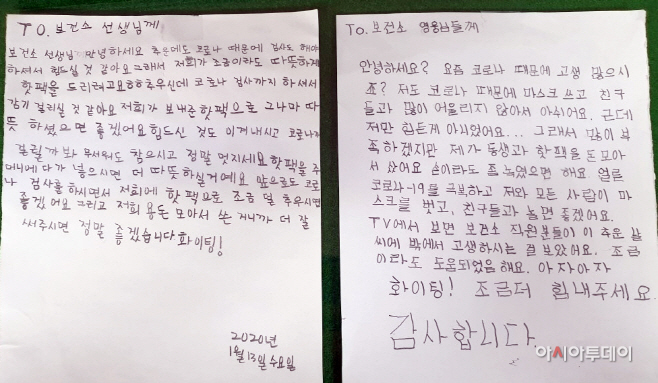 TO. 보건소 선생님께
보건소 선생님 안녕하세요 추운데도 코로나 때문에 검사도 해야
하셔서 힘드실 것 같아요 그래서 저희가 조금이라도 따뜻하게
핫팩을 드리려고요 추우신데 코로나 검사까지 하셔서
감기 걸리실 것 같아요 저희가 보내준 핫팩으로 그나마 따
뜻 하셨으면 좋겠어요 힘드신 것도 이겨내시고 코로나가
걸릴까 봐 무서워도 참으시고 정말 멋지세요 핫팩을 주
머니에다가 넣으시면 더 따뜻하실거예요 앞으로도 코로
나 검사를 하시면서 저희에 핫팩으로 조금 덜 추우시면
좋겠어요 그리고 저희 용돈 모아서 쓴 거니까 더 잘
써주시면 정말 좋겠습니다 화이팅!
2020년
1월 13일 수요일
To. 보건소 영웅님들께
안녕하세요? 요즘 코로나 때문에 고생 많으시
죠? 저도 코로나 때문에 마스크 쓰고 친구
들과 많이 어울리지 않아서 아쉬어요. 근데
저만 힘든게 아니었어요... 그래서 많이 부
족하겠지만 제가 동생과 핫팩을 돈 모아
서 샀어요 손이라도 좀 녹였으면 해요. 얼른
코로나-19를 극복하고 저와 모든 사람이 마
스크를 벗고, 친구들과 놀면 좋겠어요.
TV에서 보면 보건소 직원분들이 이 추운 날
씨에 밖에서 고생하시는 걸 보았어요. 조금
이라도 도움되었음 해요. 아자아자
화이팅! 조금더 힘내주세요
감사합니다.
아시아투데이